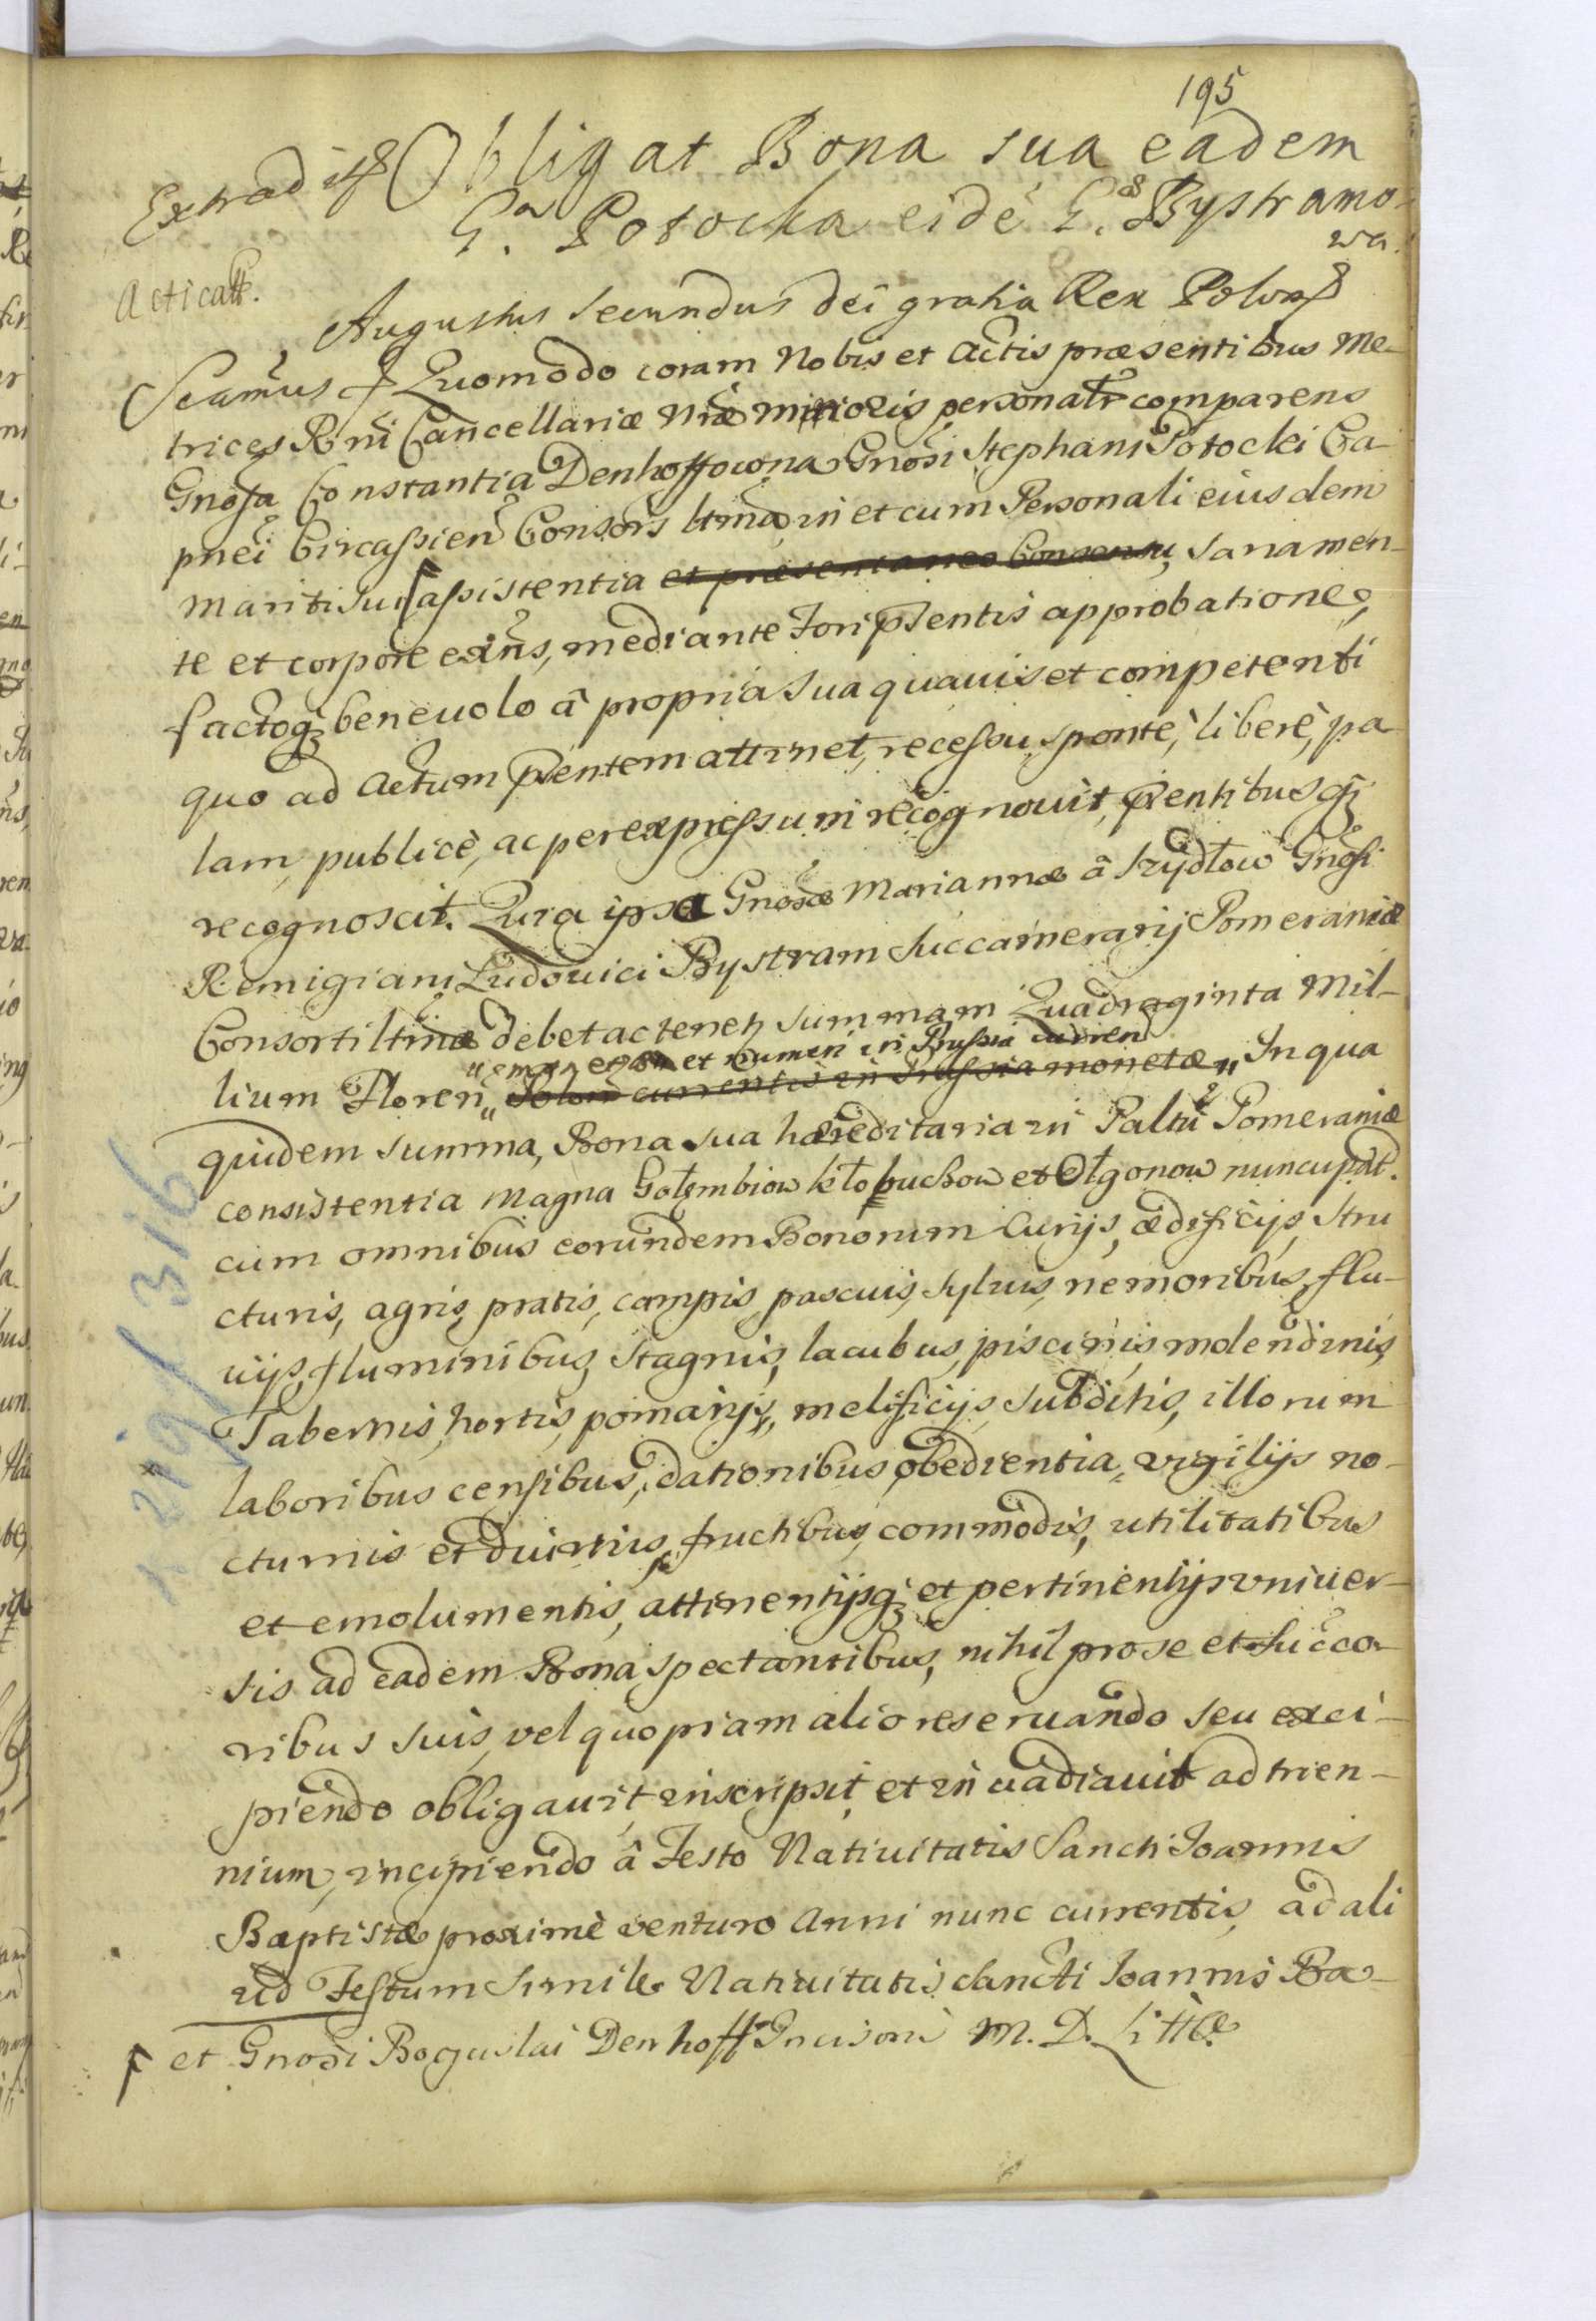 195
Extradit Obligat Bona sua eadem
G.a Potocka eidē G. Bystramo-
wa.
Acticatt.
Augustus Secundus dei gratia Rex Polon
Scamus Quomodo coram Nobis et Actis præsentibus Me-
trices Rni Cancellariæ Nræ minoris personatr comparens
Gnosa Constantia Denhoffowna Gnosi Stephani Potocki Ca-
pnei Circassien Consors ltma, in et cum Personali eiusdem
mariti sui assistentia et præsentaneo Consensu, sana men-
te et corpore exns, mediante Fori pñtentis approbatione,
factoq, beneuolo â propria sua quauis et competenti
quo ad Actum pñtentem attinet, recessu, sponte, libere, pa-
lam, publicè, ac per expressum recognouit, pñtentibusq,
recognoscit. Quia ipsa Gnosæ Mariannæ â Szydłow Gnosi
Remigiani Ludouici Bystram Succamerarij Pomeraniæ
Consorti ltmæ debet ac tenet summam Quadraginta Mil-
et numeri in Prussia
lium Floren Polon currentis in Prussia monetæ In qua
quidem summa, Bona sua hæreditaria in Paltu Pomeraniæ
consistentia Magna Gołembiow kłobuchow et Ołgonow nuncupat.
cum omnibus eorundem Bonorum Curijs, ædificijs, stru
cturis, agris, pratis, campis, pascuis, syluis, nemoribus, flu-
uijs, fluminibus, stagnis, lacubus, piscinis, molendinis,
Tabernis, hortis, pomarijs, melificijs, subditis, illorum
laboribus censibus, dationibus, obedientia, vigilijs no-
cturnis et diurnis, fructibus, commodis, utilitatibus
et emolumentis, attinentijsq, et pertinentijs vniuer-
sis ad eadem Bona spectantibus, nihil pro se et Succo-
ribus suis, vel quopiam alio reseruando seu exci-
piendo obligauit, inscripsit, et inuadiauit ad trien-
nium, incipiendo â Festo Natiuitatis Sancti Joannis
Baptistæ proxime venturo Anni nunc currentis, ad ali
ud Festum simile Natiuitatis Sancti Joannis Ba-
et Gnosi Boguslai Denhoff Incisoris M. D. Littæ